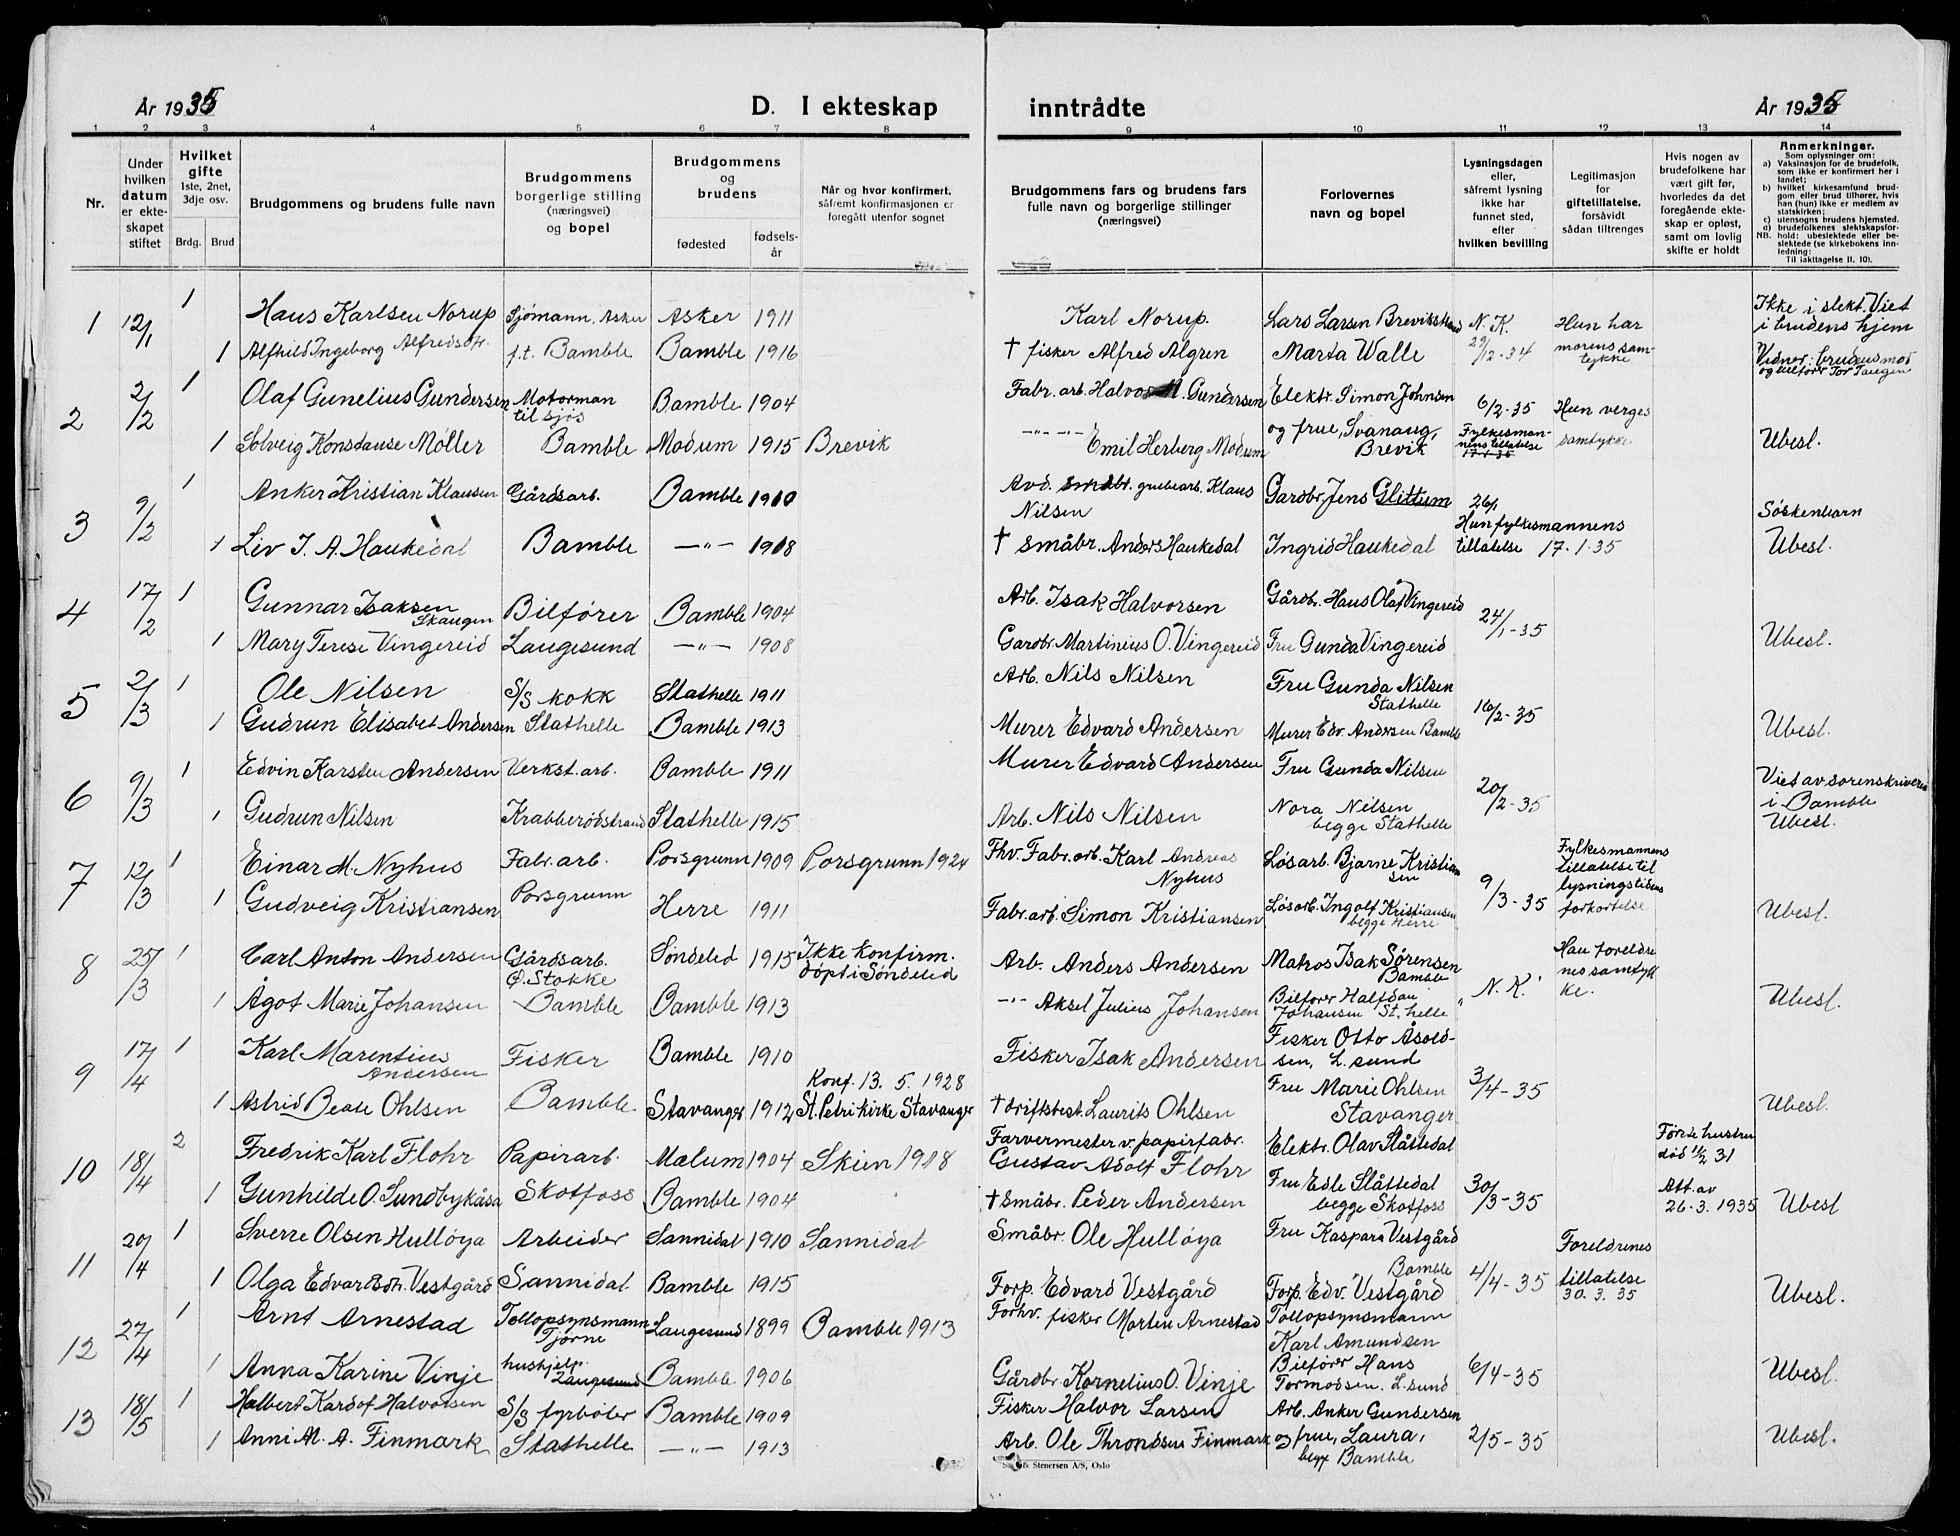 År 1935
D. I ekteskap
inntrådte
År 1935
1 2 3 4 5 6 7 8 9 10 11 12 13 14
Nr.
Under hvilken datum er ekteskapet stiftet
Hvilket gifte
1ste, 2net, 3dje osv.
Brdg. Brud
Brudgommens og brudens fulle navn
Brudgommens borgerlige stilling (næringsvei) og bopel
Brudgommens og brudens
fødested
fødselsår
Når og hvor konfirmert, såfremt konfirmasjonen er foregått utenfor sognet
Brudgommens fars og brudens fars fulle navn og borgerlige stillinger (næringsvei)
Forlovernes navn og bopel
Lysningsdagen eller, såfremt lysning ikke har funnet sted, efter hvilken bevilling
Legitimasjon for giftetillatelse, forsåvidt sådan tiltrenges
Hvis nogen av brudefolkene har vært gift før, hvorledes da det foregående ekteskap er opløst, samt om lovlig skifte er holdt
Anmerkninger.
Som oplysninger om:
a) Vaksinasjon for de brudefolk, som ikke er konfirmert her i landet;
b) hvilket kirkesamfund brudgom eller brud tilhører, hvis han (hun) ikke er medlem av statskirken;
c) utensogns brudens hjemsted.
d) brudefolkenes slektskapsforhold: ubeslektede eller beslektede (se kirkebokens innledning:
NB. Til iakttagelse II. 10).
1 12/1 1 Hans Karlsen Norup Sjømann, Asker Asker 1911 Karl Norup. Lars Larsen Brevikstrand N. K. Hun har Ikke i slekt. Viet i brudens hjem
1 Alfhild Ingeborg Alfredsdtr. f.t. Bamble Bamble 1916 † fisker Alfred Algren Marta Walle 29/12-34 morens samtykke Vidner: brudens mor og bilfører Tor Taugen
2 2/2 1 Olaf Gunelius Gundersen Motormann til sjøs Bamble 1904 Fabr. arb. Halvor M. Gundersen Elektr. Simon Johnsen 6/2-35 Hun verges
1 Solveig Konstanse Møller Bamble Modum 1915 Brevik —"— Emil Herberg Modum og frue, Svanaug, Brevik Fylkesmannens tillatelse 17-1-35 samtykke. Ubesl.
3 9/2 1 Anker Kristian Klausen Gårdsarb. Bamble 1900 Avd. småbr. grubearb. Klaus Nilsen Gardbr. Jens Glittum 26/1 Søskenbarn
1 Liv I. A. Haukedal Bamble —"— 1908 † Småbr. Anders Haukedal Ingrid Haukedal Hun fylkesmannens tillatelse 17.1.35 Ubesl.
4 17/2 1 Gunnar Isaksen Skaugen Bilfører Bamble 1904 Arb. Isak Halvorsen Gårdbr. Hans Olaf Vingereid 24/1-35
1 Mary Terese Vingereid Langesund —"— 1908 Gardbr. Martinius O. Vingereid Fru Gunda Vingereid Ubesl.
5 2/3 1 Ole Nilsen S/S kokk Stathelle 1911 Arb. Nils Nilsen Fru Gunda Nilsen Stathelle 16/2-35
1 Gudrun Elisabet Andersen Stathelle Bamble 1913 Murer Edvard Andersen Murer Edv. Andersen Bamble Ubesl.
6 9/3 1 Edvin Karsten Andersen Verkst. arb. Bamble 1911 Murer Edvard Andersen Fru Gunda Nilsen 20/2-35 Viet av sorenskriveren i Bamble
1 Gudrun Nilsen Krabberødstrand Stathelle 1915 Arb. Nils Nilsen Nora Nilsen begge Stathelle Ubesl.
7 12/3 1 Einar M. Nyhus Fabr. arb. Porsgrunn 1909 Porsgrunn 1924 Fhv. Fabr. arb. Karl Andreas Nyhus Løsarb. Bjarne Kristiansen 9/3-35 Fylkesmannens tillatelse til
1 Gudveig Kristiansen Porsgrunn Herre 1911 Fabr. arb. Simon Kristiansen Løsarb. Ingolf Kristiansen begge Herre lysningstidens forkortelse Ubesl.
8 25/3 1 Carl Anton Andersen Gårdsarb. Ø. Stokke Søndeled 1915 Ikke konfirm. døpt i Søndeled Arb. Anders Andersen Matros Isak Sørensen Bamble N. K. Han foreldrenes samtykke.
1 Ågot Marie Johansen Bamble Bamble 1913 —"— Aksel Julius Johansen Bilfører Halfdan Johansen St.helle Ubesl.
9 17/4 1 Karl Marentius Andersen Fisker Bamble 1910 Fisker Isak Andersen Fisker Otto Åsoldsen, L. sund 3/4-35
1 Astrid Beate Ohlsen Bamble Stavanger 1912 Konf. 13. 5. 1928 St. Petri kirke Stavanger † driftsbest. Laurits Ohlsen Fru Marie Ohlsen Stavanger Ubesl.
10 18/4 2 Fredrik Karl Flohr Papirarb. Mælum 1904 Skien 1918 Farvermester v. papirfabr. Gustav Adolf Flohr Elektr. Olav Slåttedal Første hustru død 11/2 31
1 Gunhilde O. Sundbykåsa Skotfoss Bamble 1904 † Småbr. Peder Andersen Fru Edle Slåttedal begge Skotfoss 30/3-35 Att. av 26.3.1935 Ubesl
11 20/4 1 Sverre Olsen Hulløya Arbeider Sannidal 1910 Sannidal Småbr. Ole Hulløya Fru Kaspara Vestgård Bamble Foreldrenes
1 Olga Edvardsdtr. Vestgård Sannidal Bamble 1915 Forp. Edvard Vestgård Forp. Edv. Vestgård 4/4-35 tillatelse 30. 3. 35 Ubesl.
12 27/4 1 Arnt Arnestad Tollopsynsmann Tjørne Langesund 1899 Bamble 1913 Forhv. fisker Morten Arnestad Tollopsynsmann Karl Amundsen
1 Anna Karine Vinje hushjelp. Langesund Bamble 1906 Gårdbr. Kornelius O. Vinje Bilfører Hans Tormodsen. L. sund 6/4-35 Ubesl.
13 18/5 1 Halbert Kardof Halvorsen S/S fyrbøter Bamble 1909 Fisker Halvor Larsen Arb. Anker Gundersen
1 Anni M. A. Finmark Stathelle —"— 1913 Arb. Ole Throndsen Finmark og frue, Laura, begge Bamble 2/5-35 Ubesl.
& Stenersen A/S, Oslo